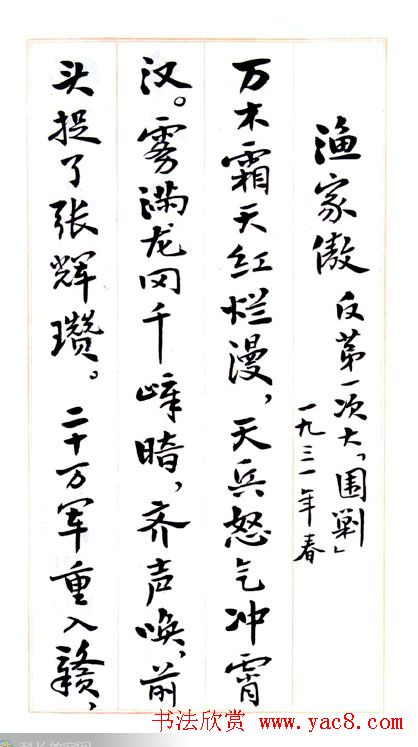 渔家傲 反第一次大「围剿」
一九三一年春
万木霜天红烂漫，天兵怒气冲霄
汉。雾满龙冈千嶂暗，齐声唤，前
头捉了张辉瓒。二十万军重入赣，
书法欣赏 www.yac8.com